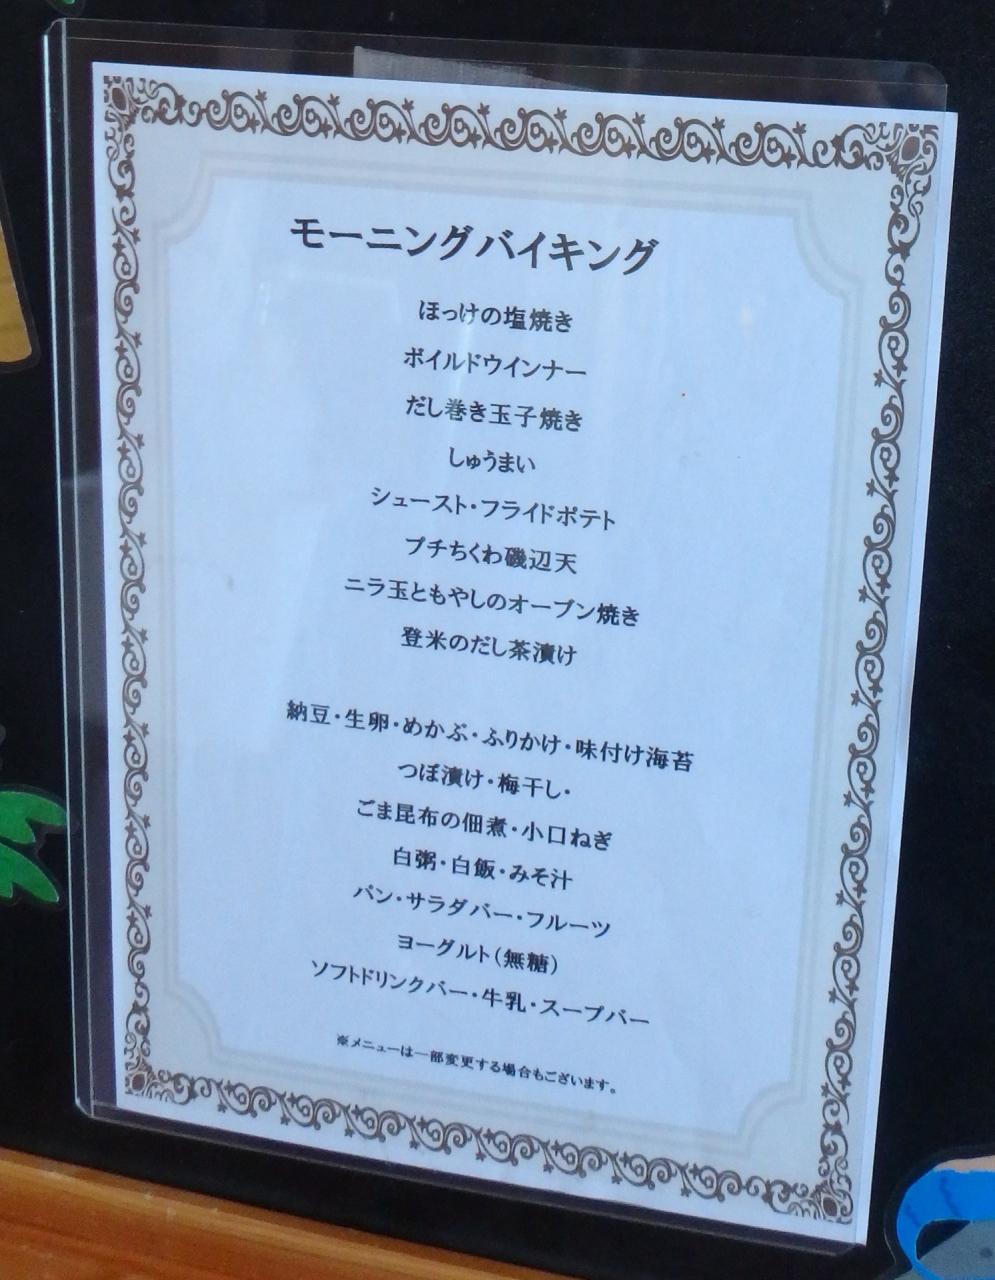 モーニングバイキング
ほっけの塩焼き
ボイルドウインナー
だし巻き玉子焼き
しゅうまい
シュースト・フライドポテト
プチちくわ磯辺天
ニラ玉ともやしのオーブン焼き
登米のだし茶漬け
納豆・生卵・めかぶ・ふりかけ・味付け海苔
つぼ漬け・梅干し・
ごま昆布の佃煮・小口ねぎ
白粥・白飯・みそ汁
パン・サラダバー・フルーツ
ヨーグルト（無糖）
ソフトドリンクバー・牛乳・スープバー
※メニューは一部変更する場合もございます。